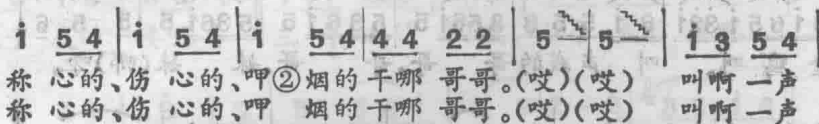 i 5 4 | i 5 4 | i 5 4 | 4 4 2 2 | 5 | 5 | 1 3 5 4 |
称 心的、伤 心的、呷②烟的 干哪 哥哥。(哎)(哎) 叫啊 一声
称 心的、伤 心的、呷 烟的 干哪 哥哥。(哎)(哎) 叫啊 一声